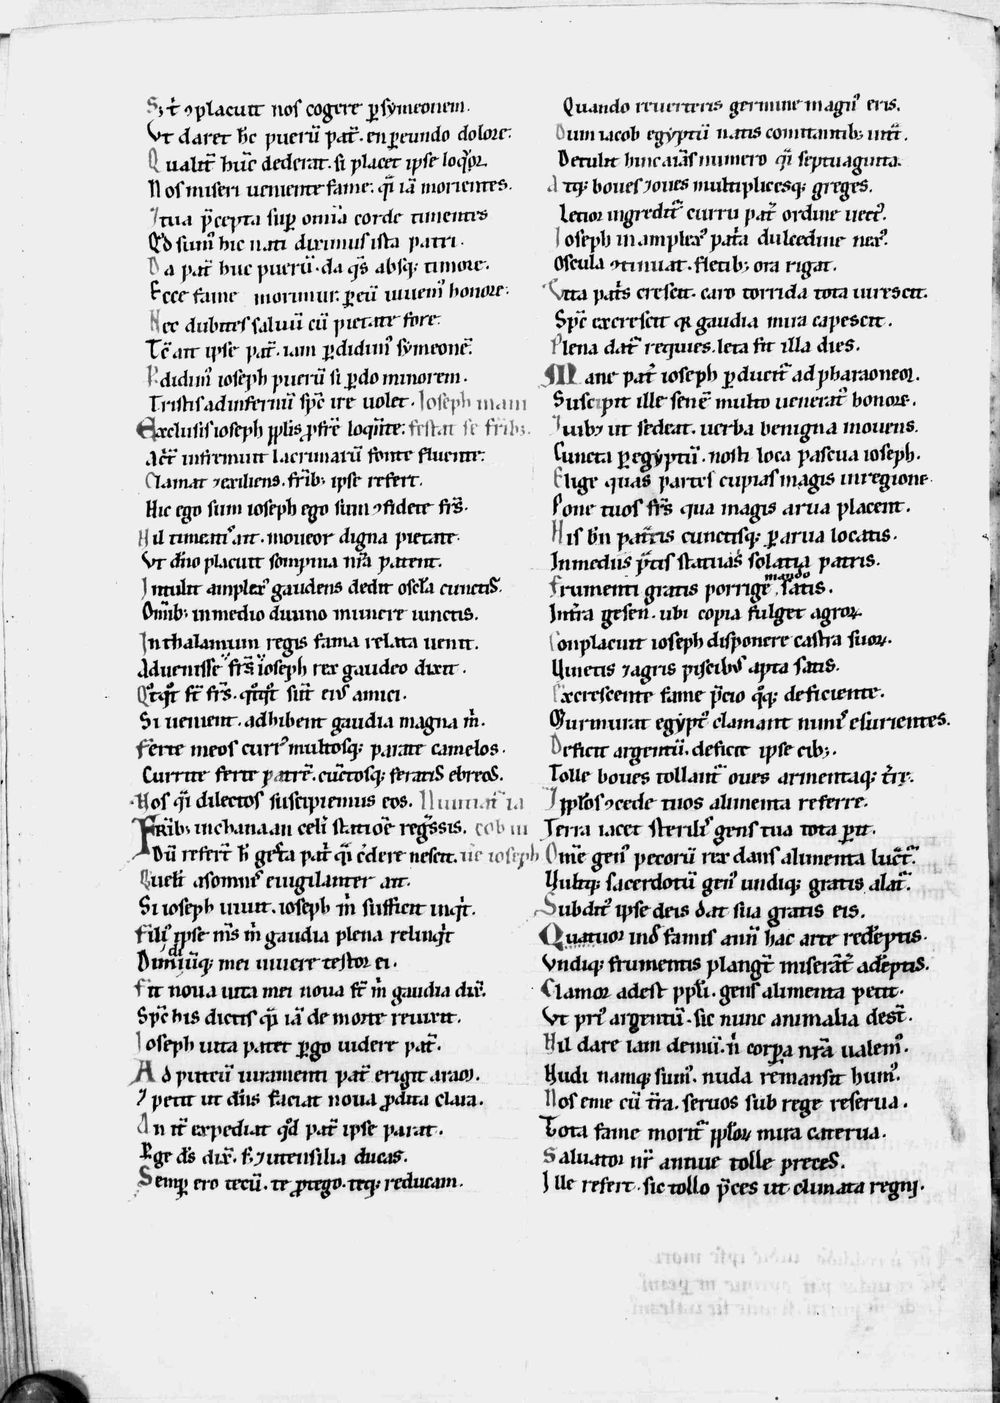 S; t̄ ꝯplacuit nos cogere ꝑ symeonem.
Vt daret hc̄ puerū pat̄. en ꝑeundo dolore:
Qualit̄ hūc dederat. si placet ipse loq̄r.
Nos miseri ueniente fame. qͥ iā morientes.
I tua p̄cepta suꝑ omīa corde timentes
Qd̄ sumꝰ hic nati diximus ista patri.
Da pat̄ huc puerū. da q̄s absq; timore.
Ecce fame morimur. ꝑ eū uiuemꝰ honore.
Nec dubites saluū cū pietate fore.
Tc̄ ait ipse pat̄. iam ꝑdidimꝰ symeonē.
Pdidimꝰ ioseph puerū si ꝑdo minorem.
Tristis ad infernū sp̄c ire uolet. Ioseph mani
Exclusis ioseph pp̄lis ꝓ fr̄e loqn̄te: festat se fr̄ib;.
Act̄ infremuit lacrimarū fonte fluente.
Clamat ⁊ exiliens. fr̄ib; ipse refert.
Hic ego sum ioseph ego sum ꝯfidete fr̄s.
Nil timeatꝰ ait. moueor digna pietate.
Vt dn̄o placuit sompnia nr̄a patent.
Intulit amplexꝰ gaudens dedit oscl̄a cunctis.
Om̄ib; in medio diuino munere iunctis.
In thalamum regis fama relata uenit.
Aduenisse fr̄s ioseph rex gaudeo dixit.
Qͦtqͦt st̄ fr̄s. qͦtqͦt sūt eiꝰ amici.
Si ueniēt. adhibent gaudia magna m̄.
Ferte meos currꝰ multosq; parate camelos.
Currite ferte patrē. cūctosq; feratis ebreos.
Nos qͥ dilectos suscipiemus eos. Nuntiat̄ ia
Fr̄ib; in chanaan celi statiōe reḡssis. cob ui
Dū refert̄ h̄ gesta pat̄ qͥ c̄dere nescit. ue ioseph
Queli a somnꝰ euigilanter ait.
Si ioseph uiuit. ioseph m̄ sufficit inqͥt.
Filiꝰ ipse mꝰs m̄ gaudia plena relinqͥt
Fit noua uita mei noua st̄ m̄ gaudia dix̄.
Sp̄c his dictis qͥ iā de morte reuixit.
Ioseph uita patet ꝑgo uidere pat̄.
Ad puteū iuramenti pat̄ erigit araꝫ.
⁊ petit ut dn̄s faciat noua ꝓdita clara.
An it̄ expediat qd̄ pat̄ ipse parat.
Semꝑ ero tecū. te ꝓtego. teq; reducam.
Quando reuerteris germine magnꝰ eris.
Dum iacob egyptū natis comitantib; int̄t.
Detulit hinc aīas numero qͥ septuaginta.
Atq; boues ⁊ oues multiplicesq; greges.
Letior ingredit̄ curru pat̄ ordine uectꝰ.
Ioseph in amplexꝰ pat̄a dulcedine nexꝰ.
Oscula ꝯtinuat. fletib; ora rigat.
Vita pat̄s crescit. caro torrida tota uirescit.
Sp̄c excrescit qꝛ gaudia mira capescit.
Plena dat̄ requies. leta fit illa dies.
Mane pat̄ ioseph ꝑducit̄ ad pharaoneꝫ.
Suscipit ille senē multo ueneratꝰ honore.
Iubꝫ ut sedeat. uerba benigna mouens.
Cuncta ꝑ egyptū. nosti loca pascua ioseph.
Elige quas partes cupias magis in regione
Pone tuos fr̄s qua magis arua placent.
His bn̄ pat̄ris cunctisq; ꝑ arua locatis.
In mediis p̄tis statuas solatia patris.
Frumenti gratis porrige mando satis.
Int̄ra gesen. ubi copia fulget agroꝝ
Conplacuit ioseph disponere castra suoꝝ.
Uinetis ⁊ agris piscibus apta satis.
Excrescente fame p̄cio qͦq; deficiente.
Murmurat egyptꝰ clamant nimiꝰ esurientes.
Deficit argentū. deficit ipse cib;.
Tolle boues tollant̄ oues armentaq; t̄rē.
I pp̄los ⁊cede tuos alimenta referre.
Terra iacet sterilis gens tua tota ꝑit.
Om̄e genꝰ pecorū rex dans alimenta lucrat̄.
Multiq; sacerdotū genꝰ undiq; gratis alat̄.
Subditꝰ ipse deis dat sua gratis eis.
Quatuor indꝰ famis anni hac arte redēptis.
Vndiq; frumentis plangit̄ miserat̄ adēptis.
Clamor adest ppl̄i. gens alimenta petit.
Vt priꝰ argentū. sic nunc animalia dest̄.
Nil dare iam demū. n̄ corꝑa nr̄a ualemꝰ.
Nudi namq; sumꝰ. nuda remansit humꝰ.
Nos eme cū tr̄a. seruos sub rege reserua.
Tota fame morit̄ pp̄loꝝ mira caterua.
Saluator nr̄ annue tolle preces.
Ille refert. sic tollo p̄ces ut climata regni.